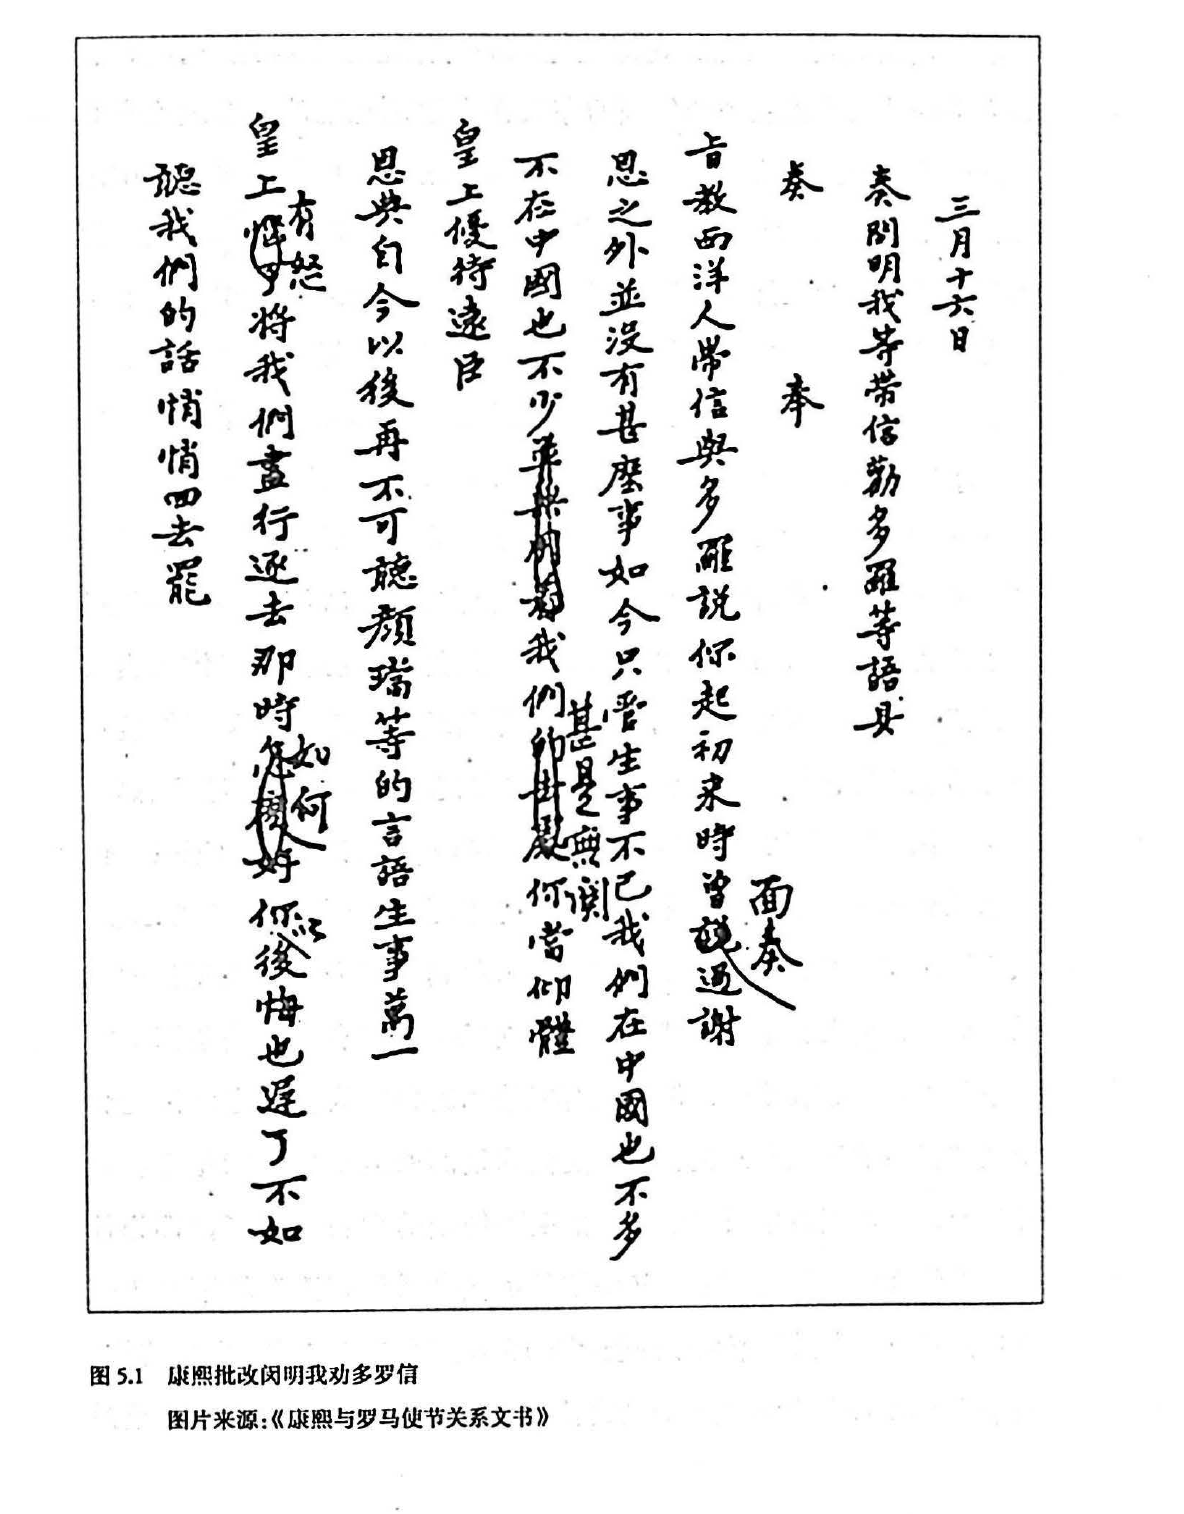 三月十六日
奏閔明我等帶信勸多羅等語具
奏 奉
旨教西洋人帶信與多羅說你起初來時曾說過謝
面奏
恩之外並沒有甚麼事如今只管生事不已我們在中國也不多
不在中國也不少我們你當仰體
甚是無關
皇上優待遠臣
恩典自今以後再不可聽顏璫等的言語生事萬一
皇上惱了將我們盡行逐去那時怎樣好你後悔也遲了不如
有怒
如何
以
聽我們的話悄悄回去罷
图 5.1 康熙批改闵明我劝多罗信
图片来源：《康熙与罗马使节关系文书》